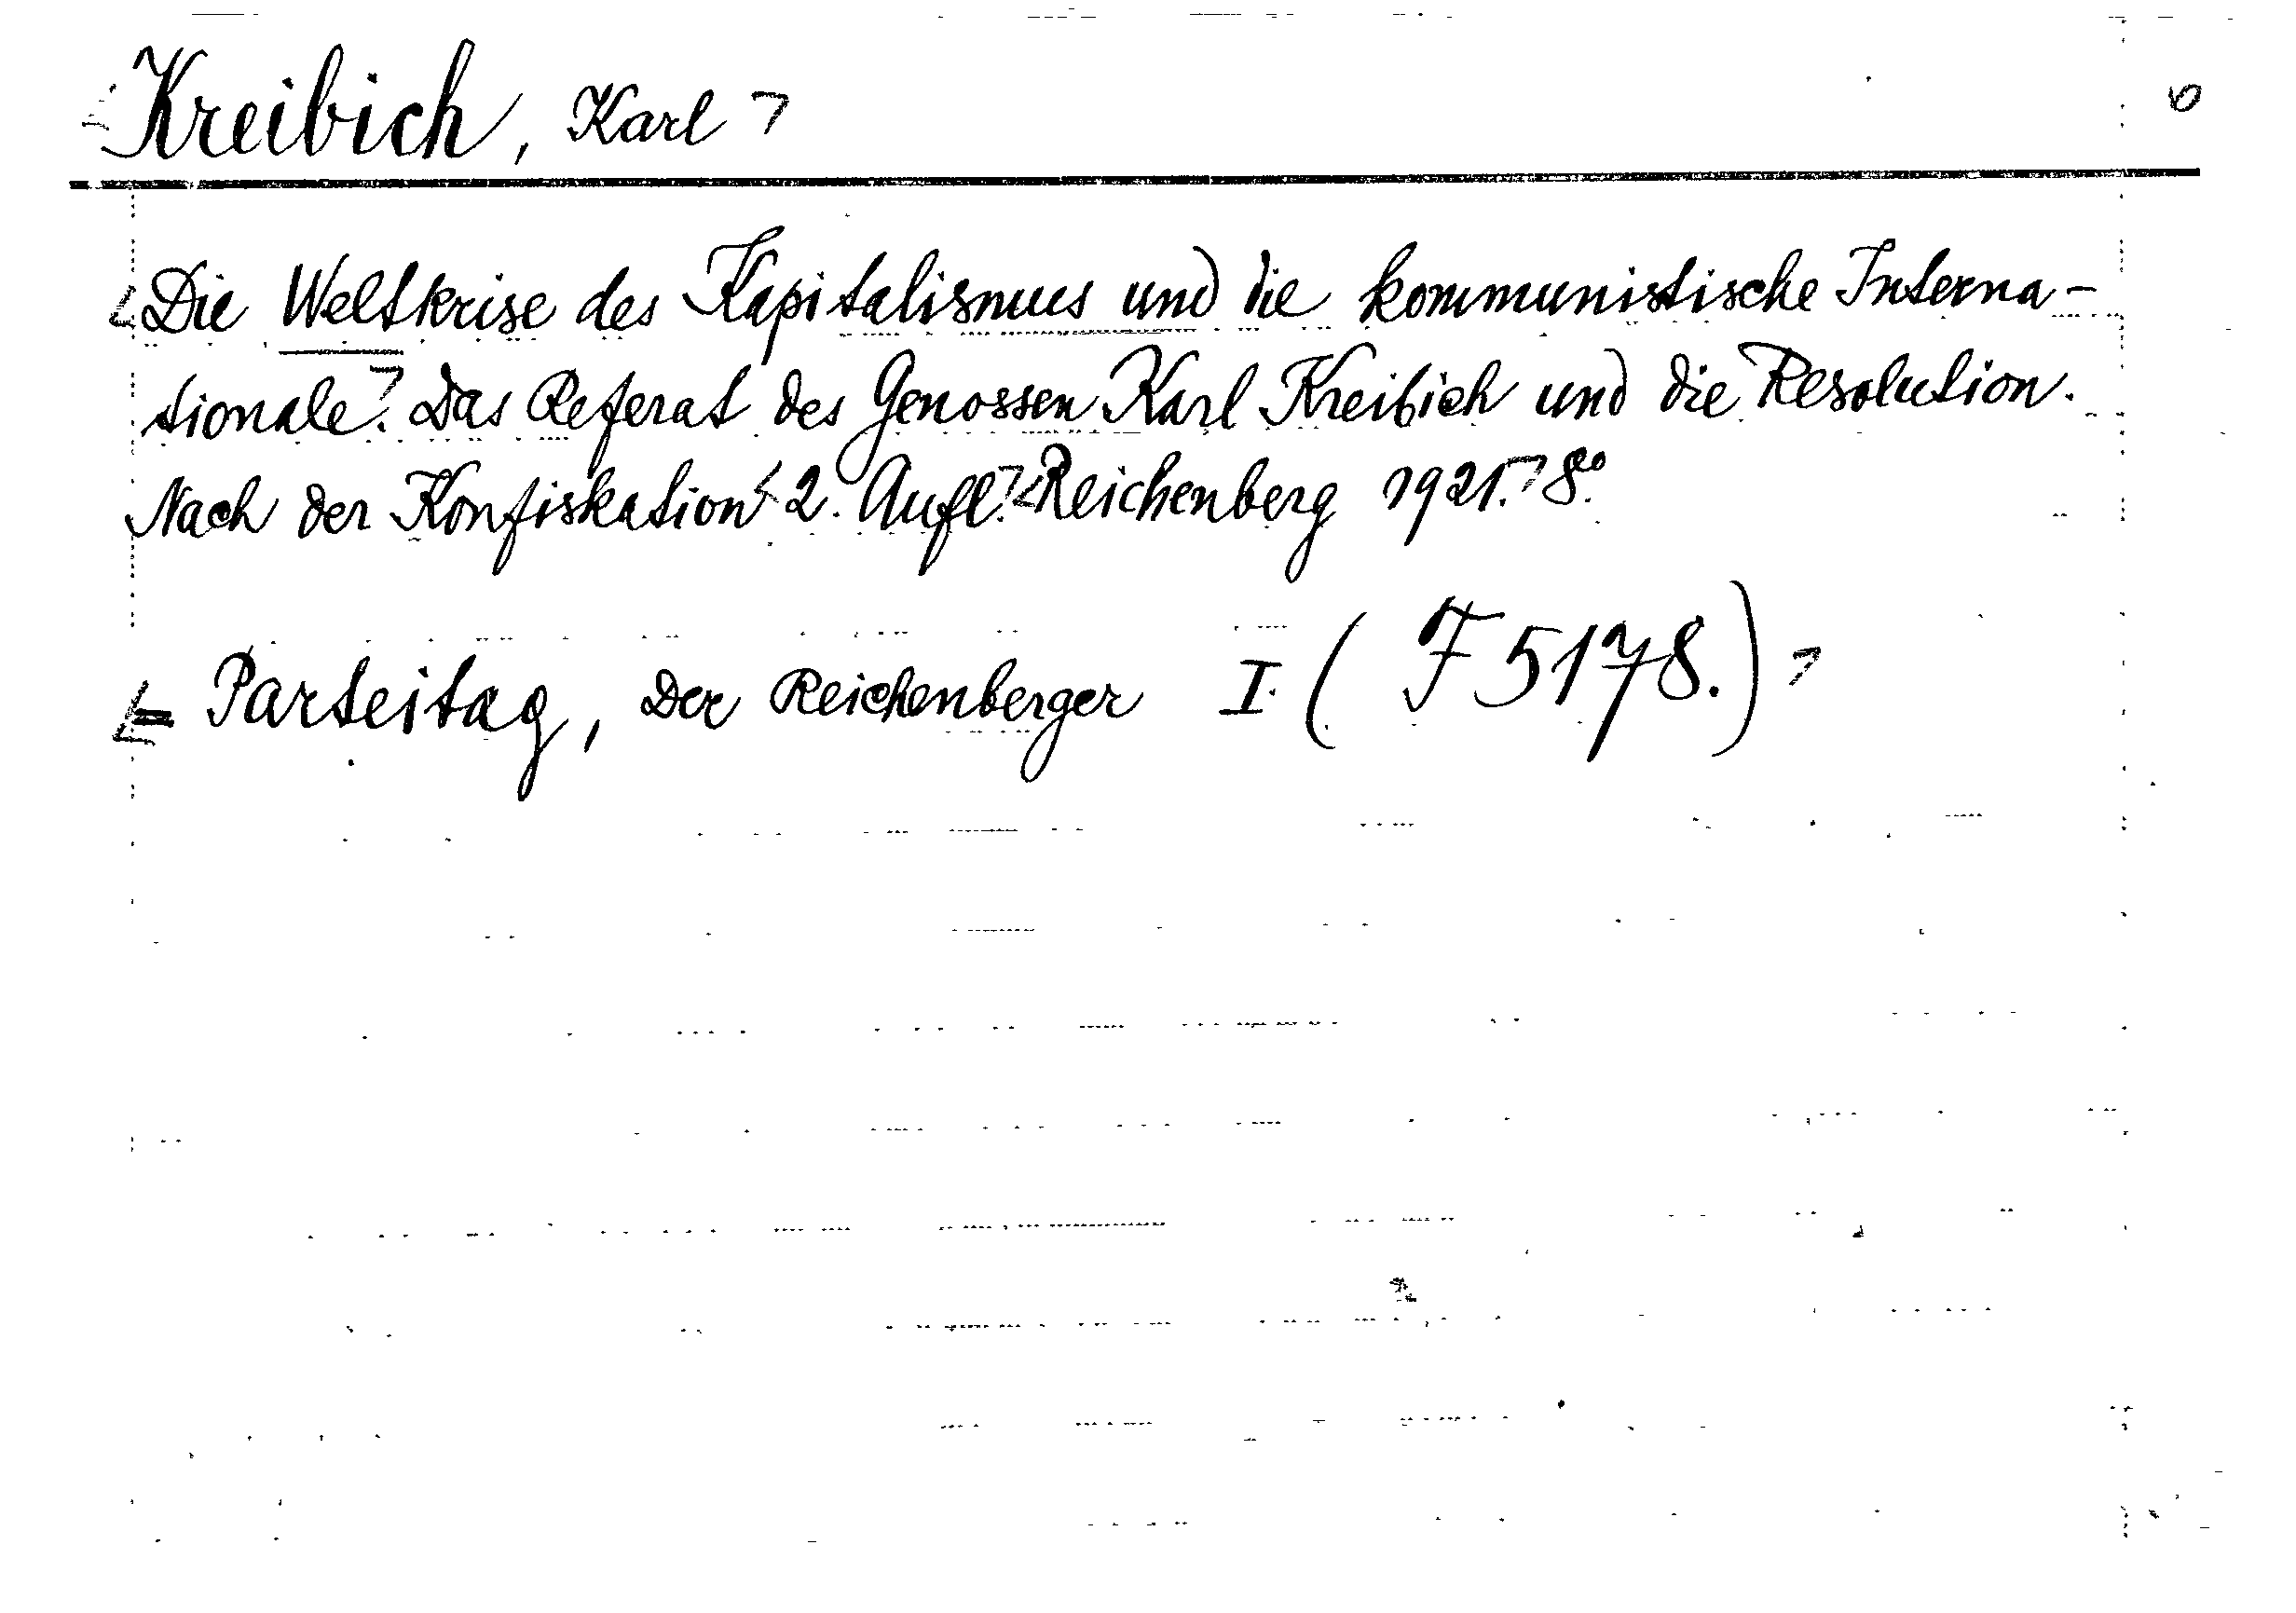 Kreibich, Karl
Die Weltkrise des Kapitalismus und die kommunistische Interna-
tionale. Das Referat des Genossen Karl Kreibich und die Resolution.
Nach der Konfiskation 2. Aufl. Reichenberg 1921. 8°.
= Parteitag, Der Reichenberger I. (F 5178.)